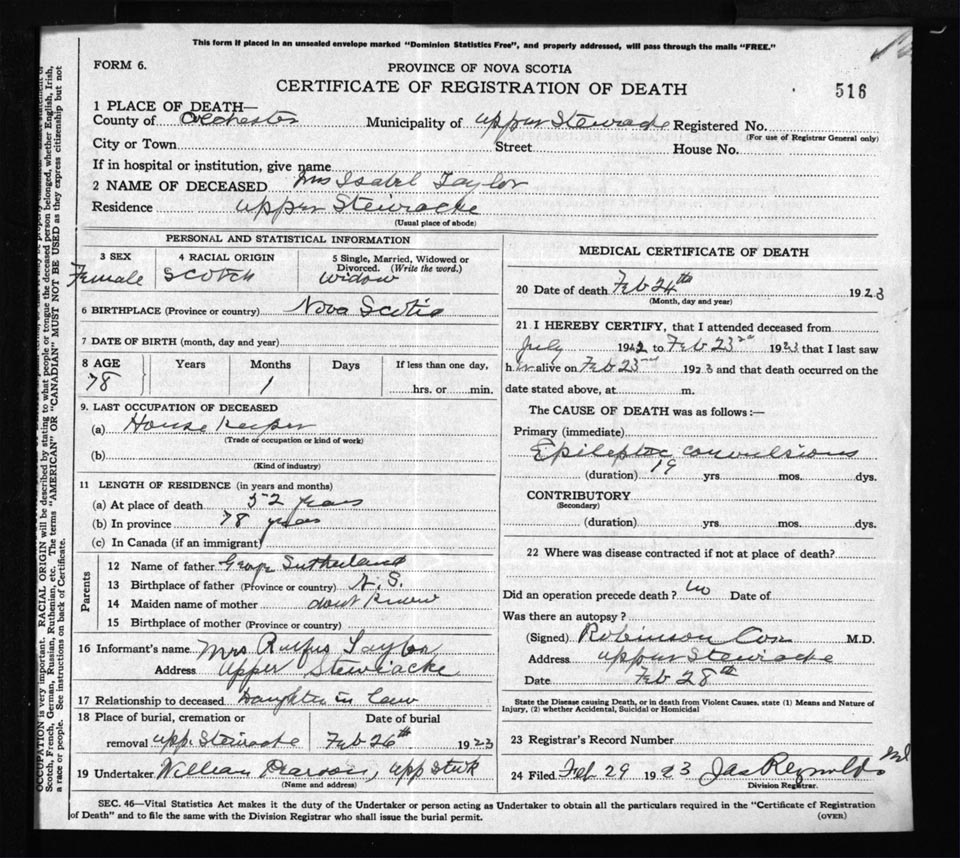 This form if placed in an unsealed envelope marked "Dominion Statistics Free", and properly addressed, will pass through the mails "FREE."
FORM 6.
PROVINCE OF NOVA SCOTIA
CERTIFICATE OF REGISTRATION OF DEATH
516
1 PLACE OF DEATH—
County of Colchester Municipality of Upper Stewiacke Registered No.
(For use of Registrar General only)
City or Town Street House No.
If in hospital or institution, give name
2 NAME OF DECEASED Mrs Isabel Taylor
Residence Upper Stewiacke
(Usual place of abode)
PERSONAL AND STATISTICAL INFORMATION
3 SEX 4 RACIAL ORIGIN 5 Single, Married, Widowed or Divorced. (Write the word.)
Female Scotch Widow
6 BIRTHPLACE (Province or country) Nova Scotia
7 DATE OF BIRTH (month, day and year)
8 AGE Years Months Days If less than one day,
78 1 hrs. or min.
9. LAST OCCUPATION OF DECEASED
(a) House Keeper
(Trade or occupation or kind of work)
(b)
(Kind of industry)
11 LENGTH OF RESIDENCE (in years and months)
(a) At place of death 52 years
(b) In province 78 years
(c) In Canada (if an immigrant)
Parents
12 Name of father George Sutherland
13 Birthplace of father (Province or country) N.S.
14 Maiden name of mother dont know
15 Birthplace of mother (Province or country)
16 Informant's name Mrs Rufus Taylor
Address Upper Stewiacke
17 Relationship to deceased Daughter in law
18 Place of burial, cremation or Date of burial
removal Upp. Stewiacke Feb 26th 1923
19 Undertaker William Upp Stwk
(Name and address)
MEDICAL CERTIFICATE OF DEATH
20 Date of death Feb 24th 1923
(Month, day and year)
21 I HEREBY CERTIFY, that I attended deceased from
July 1922 to Feb 23rd 1923 that I last saw
her alive on Feb 23rd 1923 and that death occurred on the
date stated above, at m.
The CAUSE OF DEATH was as follows:—
Primary (immediate)
Epileptic convulsions
(duration) 19 yrs. mos. dys.
CONTRIBUTORY
(Secondary)
(duration) yrs. mos. dys.
22 Where was disease contracted if not at place of death?
Did an operation precede death? no Date of
Was there an autopsy?
(Signed) Robinson Cox M.D.
Address Upper Stewiacke
Date Feb 28th
State the Disease causing Death, or in death from Violent Causes, state (1) Means and Nature of Injury, (2) whether Accidental, Suicidal or Homicidal
23 Registrar's Record Number
24 Filed Feb. 29 1923 Jas Reynolds
Division Registrar.
SEC. 46—Vital Statistics Act makes it the duty of the Undertaker or person acting as Undertaker to obtain all the particulars required in the "Certificate of Registration
of Death" and to file the same with the Division Registrar who shall issue the burial permit.
(OVER)
OCCUPATION is very important. RACIAL ORIGIN will be described by stating to what people or tongue the deceased person belonged, whether English, Irish,
Scotch, French, German, Russian, Ruthenian, etc. The terms "AMERICAN" OR "CANADIAN" MUST NOT BE USED as they express citizenship but not
a race or people. See instructions on back of Certificate.